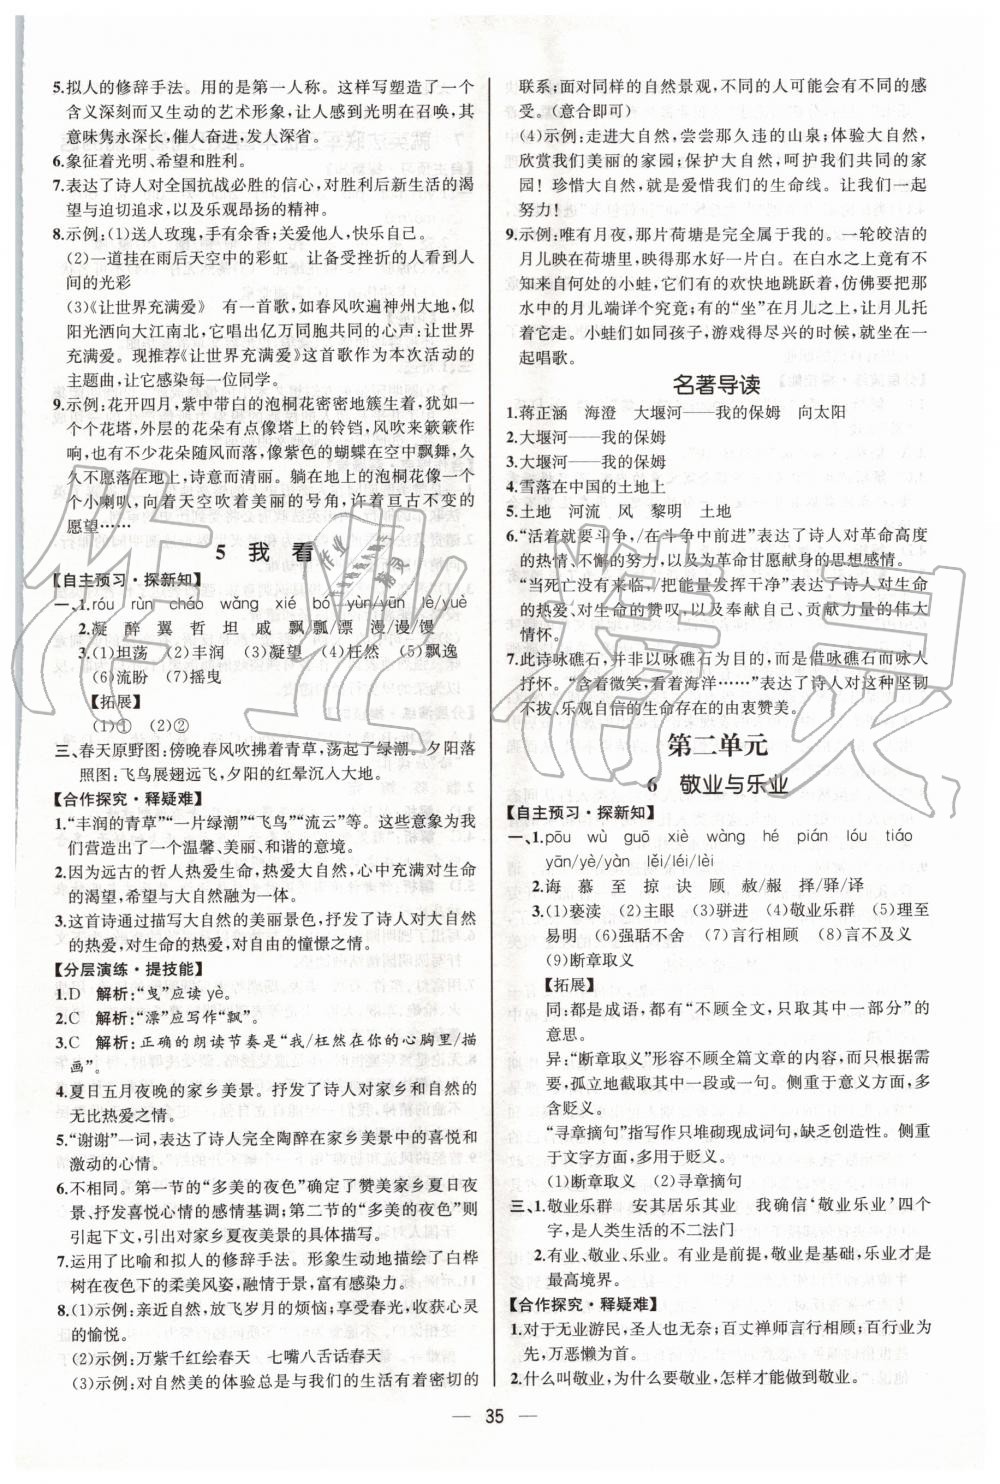 5.拟人的修辞手法。用的是第一人称。这样写塑造了一个
含义深刻而又生动的艺术形象,让人感到光明在召唤,其
意味隽永深长,催人奋进,发人深省。
6.象征着光明、希望和胜利。
7.表达了诗人对全国抗战必胜的信心,对胜利后新生活的渴
望与迫切追求,以及乐观昂扬的精神。
8.示例:(1)送人玫瑰,手有余香;关爱他人,快乐自己。
(2)一道挂在雨后天空中的彩虹　让备受挫折的人看到人
间的光彩
(3)《让世界充满爱》　有一首歌,如春风吹遍神州大地,似
阳光洒向大江南北,它唱出亿万同胞共同的心声:让世界
充满爱。现推荐《让世界充满爱》这首歌作为本次活动的
主题曲,让它感染每一位同学。
9.示例:花开四月,紫中带白的泡桐花密密地簇生着。犹如一
个个花塔,外层的花朵有点像塔上的铃铛,风吹来簌簌作
响,不少花朵随风而落,像紫色的蝴蝶在空中飘舞,久
久不愿落在地上,诗意而清丽。躺在地上的泡桐花像一个
个小喇叭,向着天空吹着美丽的号角,许着亘古不变的
愿望……
5　我　看
【自主预习·探新知】
一、1.róu　rùn　cháo　wǎng　xié　bó　yùn/yūn　lè/yuè
2.凝　醉　翼　哲　坦　戚　飘飘/漂　漫/谩/馒
3.(1)坦荡　(2)丰润　(3)凝望　(4)枉然　(5)飘逸
(6)流盼　(7)摇曳
【拓展】
(1)①　(2)②
三、春天原野图:傍晚春风吹拂着青草,荡起了绿潮。夕阳落
照图:飞鸟展翅远飞,夕阳的红晕沉入大地。
【合作探究·释疑难】
1.“丰润的青草”“一片绿潮”“飞鸟”“流云”等。这些意象为我
们营造出了一个温馨、美丽、和谐的意境。
2.因为远古的哲人热爱生命,热爱大自然,心中充满对生命
的渴望,希望与大自然融为一体。
3.这首诗通过描写大自然的美丽景色,抒发了诗人对大自然
的热爱,对生命的热爱,对自由的憧憬之情。
【分层演练·提技能】
1.D　解析:“曳”应读yè。
2.C　解析:“漂”应写作“飘”。
3.C　解析:正确的朗读节奏是“我/枉然在你的心胸里/描
画”。
4.夏日五月夜晚的家乡美景。抒发了诗人对家乡和自然的
无比热爱之情。
5.“谢谢”一词,表达了诗人完全陶醉在家乡美景中的喜悦和
激动的心情。
6.不相同。第一节的“多美的夜色”确定了赞美家乡夏日夜
景、抒发喜悦心情的感情基调;第二节的“多美的夜色”则
引起下文,引出对家乡夏夜美景的具体描写。
7.运用了比喻和拟人的修辞手法。形象生动地描绘了白桦
树在夜色下的柔美风姿,融情于景,富有感染力。
8.(1)示例:亲近自然,放飞岁月的烦恼;享受春光,收获心灵
的愉悦。
(2)示例:万紫千红绘春天　七嘴八舌话春天
(3)示例:对自然美的体验总是与我们的生活有着密切的
联系;面对同样的自然景观,不同的人可能会有不同的感
受。(意合即可)
(4)示例:走进大自然,尝尝那久违的山泉;体验大自然,
欣赏我们美丽的家园;保护大自然,共建我们和谐的家
园!珍惜大自然,就是爱惜我们的生命线。让我们一起
努力!
9.示例:唯有月夜,那片荷塘是完全属于我的。一轮皎洁的
月儿映在荷塘里,映得那水好一片白。在白水之上竟有不
知来自何处的小蛙,它们不时愉快地跳跃着,仿佛要把那
水中的月儿端详个究竟;有的“坐”在月儿之上,让月儿托
着它走。小蛙们如同孩子,游戏得尽兴的时候,就坐在一
起唱歌。
名著导读
1.蒋正涵　海澄　大堰河——我的保姆　向太阳
2.大堰河——我的保姆
3.大堰河——我的保姆
4.雪落在中国的土地上
5.土地　河流　风　黎明　土地
6.“活着就要斗争,在斗争中前进”表达了诗人对革命高度
的热情、不懈的努力,以及为革命甘愿献身的思想感情。
“当死亡没有来临,把能量发挥干净”表达了诗人对生命
的热爱,对生命的赞叹,以及甘愿奉献自己、贡献力量的伟大
情怀。
7.此诗咏礁石,并非以咏礁石为目的,而是借咏礁石而咏人
抒怀。“含着微笑,看着海洋……”表达了诗人对这种坚韧
不拔、乐观自信的生命存在的由衷赞美。
第二单元
6　敬业与乐业
【自主预习·探新知】
一、1.pōu　wù　guō　xiè　wàng　hé　pián　lóu　tiáo
yān/yè/yàn　lěi/léi/lèi
2.诲　慕　至　掠　诀　顾　赦/赧　择/驿/译
3.(1)亵渎　(2)主眼　(3)骈进　(4)敬业乐群　(5)理至
易明　(6)强聒不舍　(7)言行相顾　(8)心无二用
(9)断章取义
【拓展】
同:都是成语,都有“不顾全文,只取其中一部分”的
意思。
异:“断章取义”形容不顾全篇文章的内容,而只根据需
要,孤立地截取其中一段或一句。侧重于意义方面,多
含贬义。
“寻章摘句”指写作只堆砌现成词句,缺乏创造性。侧重
于文字方面,多用于贬义。
(1)断章取义　(2)寻章摘句
三、1.敬业乐群　安其居乐其业　我确信‘敬业乐业’四个
字,是人类生活的不二法门
2.有业、敬业、乐业。有业是前提,敬业是基础,乐业才是
最高境界。
【合作探究·释疑难】
1.对于无业游民,圣人也无奈;百丈禅师言行相顾;百行业为
先,万恶懒为首。
2.什么叫敬业,为什么要敬业,怎样才能做到敬业。
— 35 —